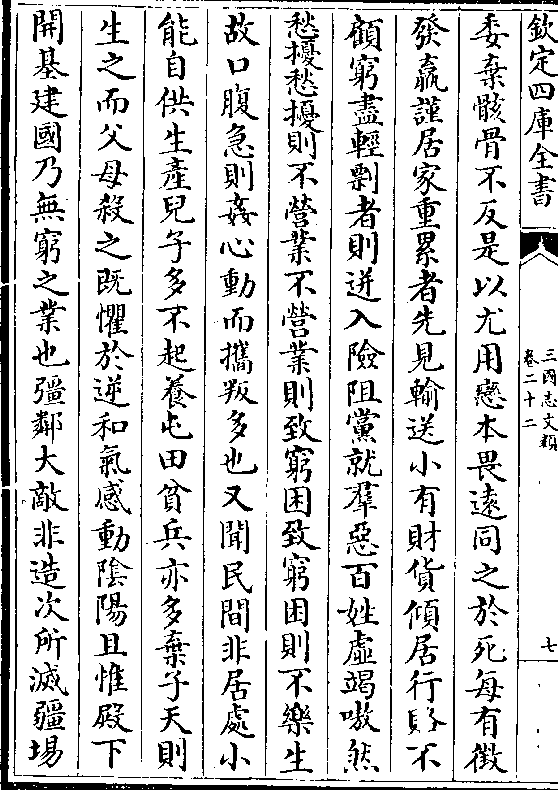 欽定四庫全書
三國志文類
卷二十二
七
委棄骸骨不反是以尤用戀本畏遠同之於死每有徵
發羸謹居家重累者先見輸送小有財貨傾居行賂不
顧窮盡輕剽者則迸入險阻黨就羣惡百姓虛竭嗷然
愁擾愁擾則不營業不營業則致窮困致窮困則不樂生
故口腹急則姦心動而攜叛多也又聞民間非居處小
能自供生產兒子多不起養屯田貧兵亦多棄子天則
生之而父母殺之既懼於逆和氣感動陰陽且惟殿下
開基建國乃無窮之業也彊鄰大敵非造次所滅疆埸